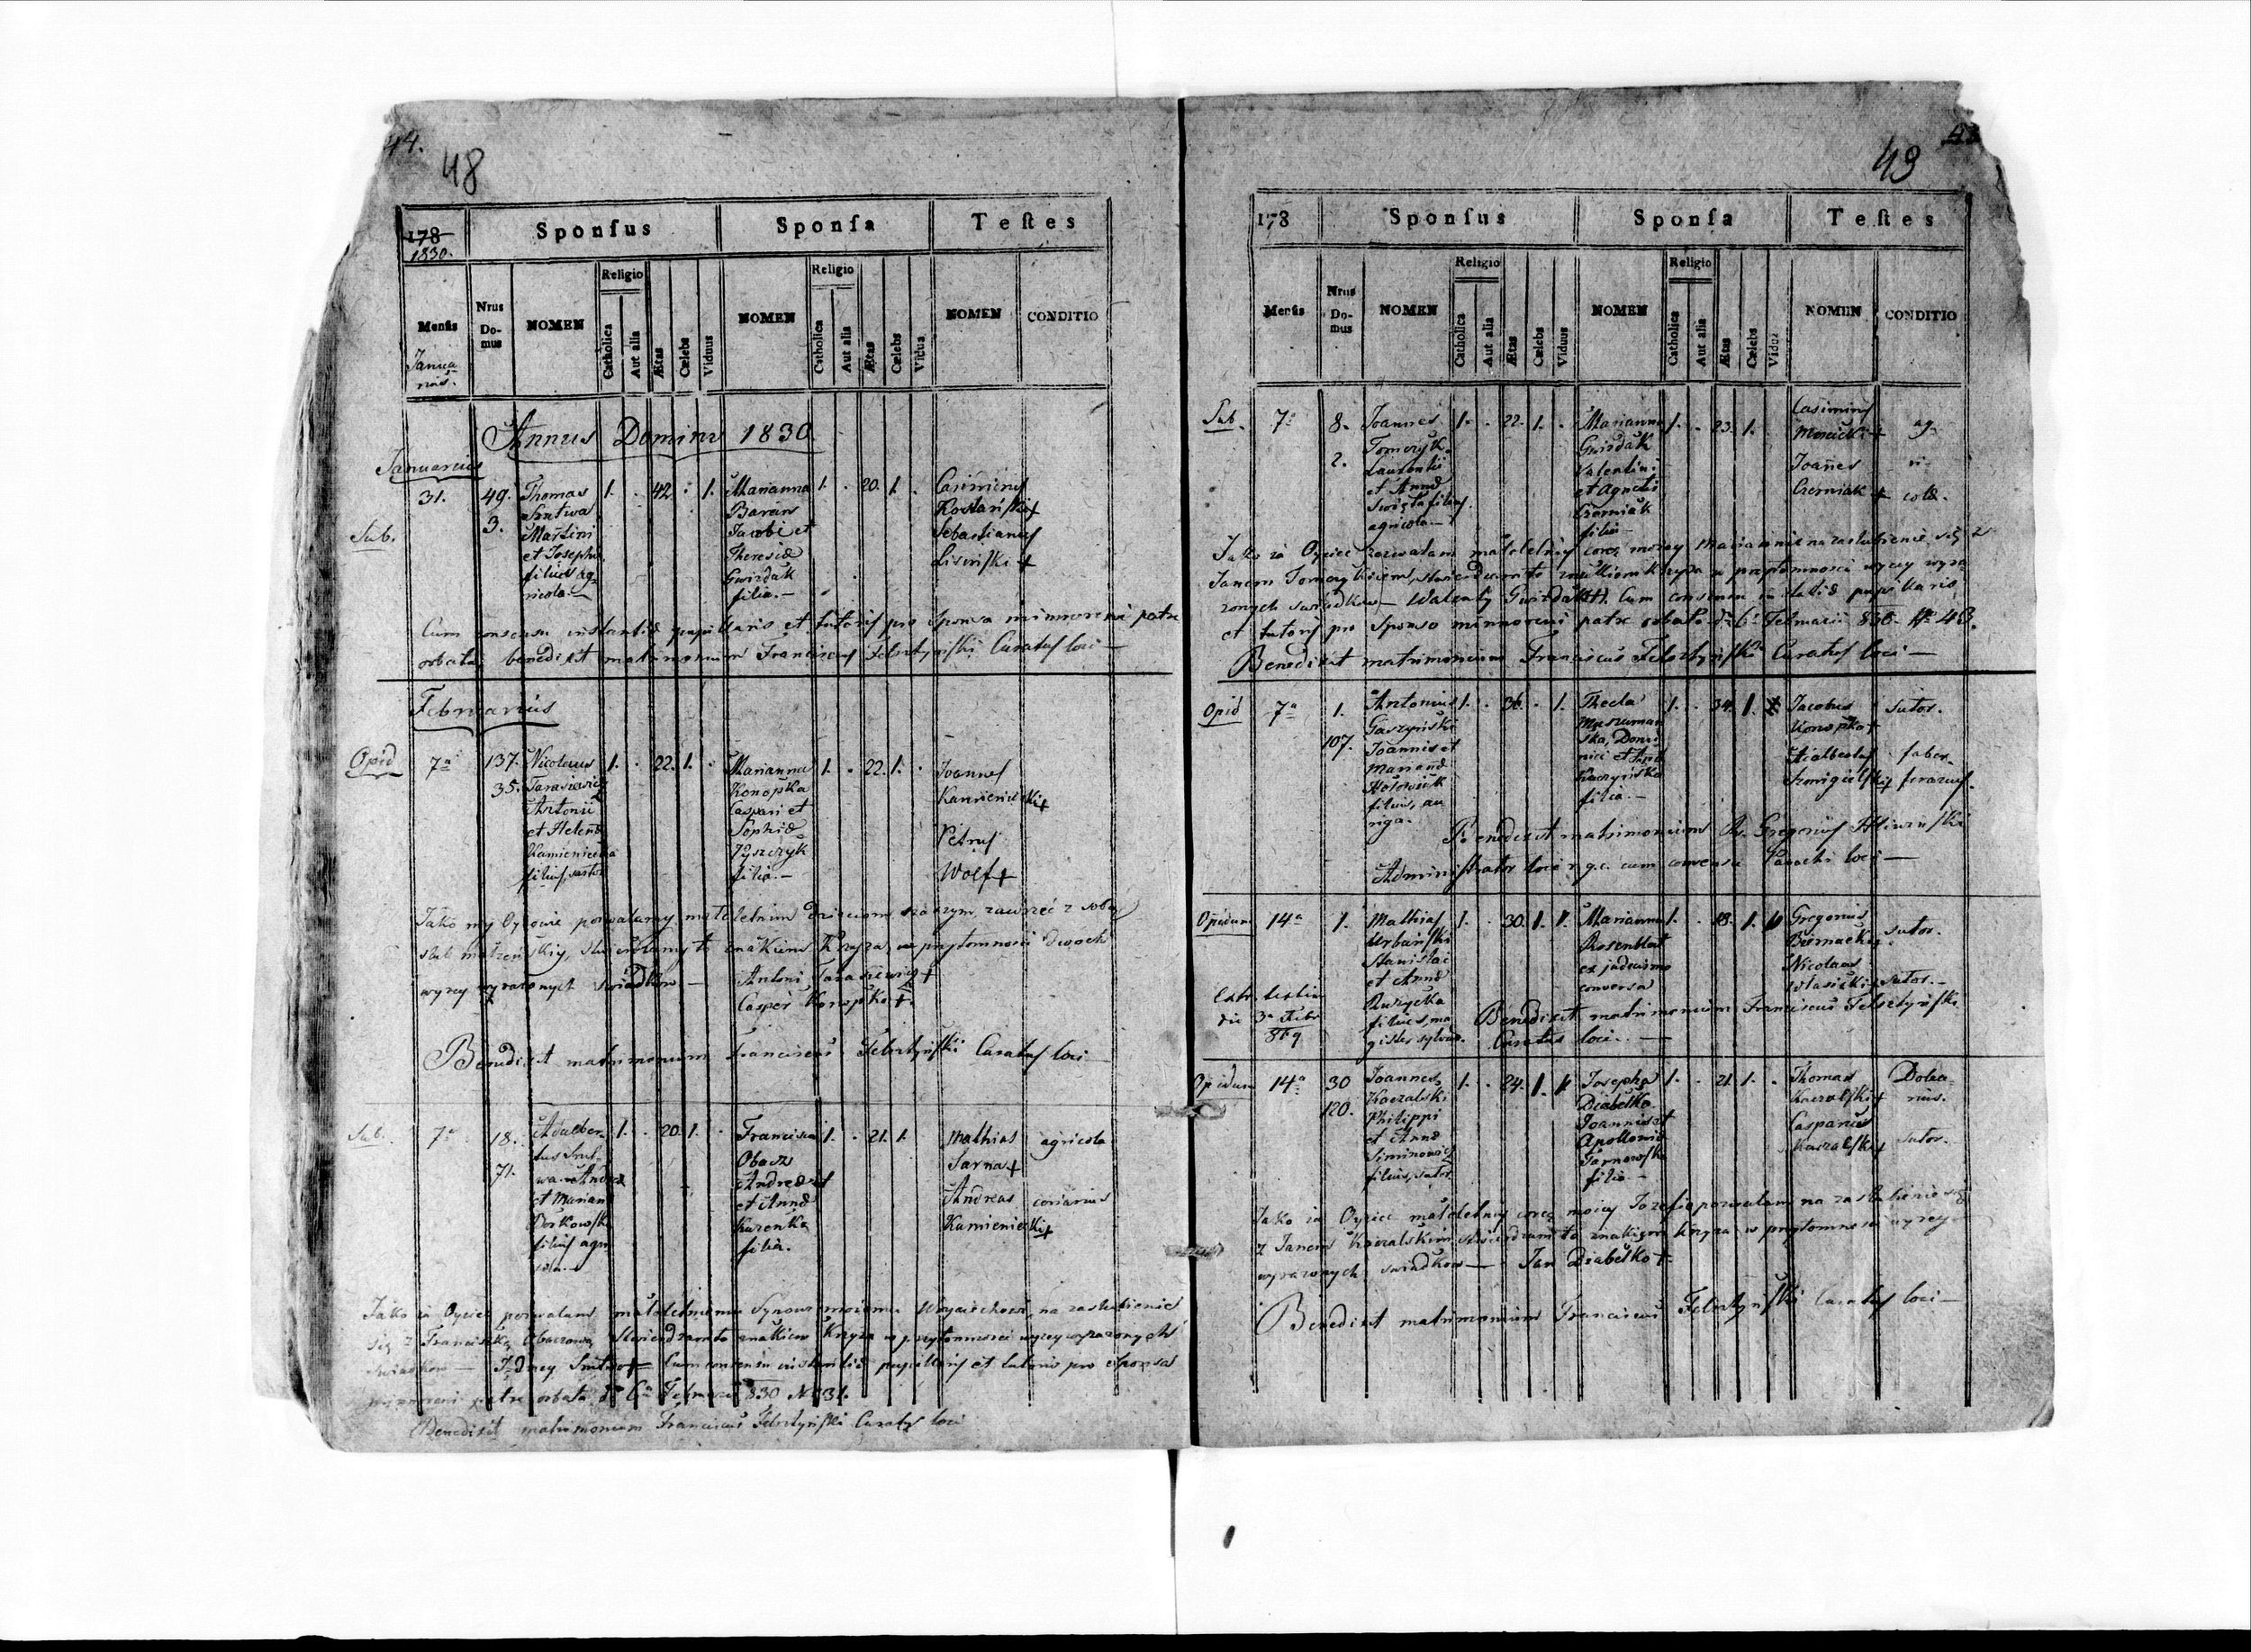 44.
48
178
1830.
Sponſus
Sponſa
Teſtes
Menſis
Nrus Do-mus
NOMEN
Religio
Catholica
Aut alia
Ætas
Cælebs
Viduus
NOMEN
Religio
Catholica
Aut alia
Ætas
Cælebs
Vidua
NOMEN
CONDITIO
Janua-
rius.
Annus Domini 1830.
Januarius
31.
Sub.
49.
3.
Thomas
Srutwa
Martini
et Josepha
filius ag-
ricola.—
1. . 42 . 1.
Marianna
Baran
Jacobi et
Theresiæ
Gwizdak
filia.—
1. . 20. 1. .
Casimirus
Sebastianus
Lisinſki +
Cum consensu instantiæ pupillaris et tutoris pro Sponsa minnoreni patre
orbata, benedixit matrimonium Franciscus Felsztyńſki Curatus loci —
Februarius
Opid
7ª
137.
35.
Nicolaus
Tarasiewicz
Antonii
et Helenæ
Kamieniecka
filius, sutor
1. . 22. 1. .
Marianna
Konopka
Caspari et
Sophiæ
Tyszczyk
filia.—
1. . 22. 1. .
Joannes
Kamieniecki +
Petrus
Wolf +
Jako my Oycowie pozwalamy małoletnim dzieciom naszym zawrzeć z sobą
ślub małżeńſkiy, stwierdzamy to znakiem Krzyża w przytomności dwoch
wyzey wyrażonych świadkow —
Antoni Tarasiewicz +
Casper Konopka +.
Benedixit matrimonium Franciscus Felsztyńſki Curatus loci
Sub.
7ª
18.
71.
Adalber-
tus Srut-
wa Andreæ
et Mariannæ
Borkowſka
filius agri-
cola.—
1. . 20. 1. .
Francisca
Obacz
Andreæ
et Annæ
Kurenka
filia.
1. . 21. 1.
Mathias
Sarna +
agricola
Andreas
Kamieniecki +
coriarius
Jako ia Oyciec pozwalam małoletniemu Synowi moiemu Woyciechowi, na zaslubienie
się z Franciszką Obaczowną, stwierdzam to znakiem Krzyża w przytomności wyzey wyrażonych
świadkow — Jędrzey Srutwa + Cum consensu instantiæ pupillaris et tutoris pro Sponsa
minnoreni patre orbata dto 6ª Februarii 830 No 31.
Benedixit matrimonium Franciscus Felsztyńſki Curatus loci
49
178
Sponſus
Sponſa
Teſtes
Menſis
Nrus Do-mus
NOMEN
Religio
Catholica
Aut alia
Ætas
Cælebs
Viduus
NOMEN
Religio
Catholica
Aut alia
Ætas
Cælebs
Vidua
NOMEN
CONDITIO
Sub.
7ª
8.
2.
Joannes
Tomczyk
Laurentii
et Annæ
Swięta filius
agricola—
1. . 22. 1. .
Marianna
Gwizdak
Valentini
et Agnetis
Czerniak
filia—
1. . 23. 1.
Casimirus
Mosicki +
Joannes
Czerniak +
ag-
ri-
colæ.
Jako ia Oyciec pozwalam małoletniey corce moiey Mariannie na zaslubienie się z
Janem Tomczykiem, stwierdzam to znakiem krzyża w przytomności wyzey wyra-
żonych swiadkow — Walenty Gwizdak +. Cum consensu instantiæ pupillaris
et tutoris pro Sponso minnoreni patre orbato dto 6ª Februarii 830. No 43.
Benedixit matrimonium Franciscus Felsztyńſki Curatus loci —
Opid
7ª
1.
107.
Antonius
Gaszyńſki
Joannis et
Mariannæ
filius, au
riga.
1. . 36. . 1.
Thecla
Muszuman
ska, Domi
nici et
Kaczyńſka
filia.—
1. . 34. 1.
Jacobus
Konopka +
sutor.
Adalbertus
faber
ferarius.
Benedixit matrimonium Rs. Gregorius
Administrator loci r.g.c. cum consensu Parochi loci —
Opidum
14ª
1.
Mathias
Urbańſki
Stanislai
et Annæ
Ruzycka
filius, ma
gister sylvar.
1. . 30. 1.
Marianna
Rosenblat
ex judaismo
conversa
1. . 18. 1.
Gregorius
Biernacki
sutor.
Nicolaus
Wlasicki
sutor.—
Extr. testim
die 3ª Febr
869
Benedixit matrimonium Franciscus Felsztyńſki
Curatus loci. —
Opidum
14ª
30
120.
Joannes
Kaczalski
Philippi
et Annæ
Siminowicz
filius, sutor
1. . 24. 1.
Josepha
Diabełko
Joannis et
Apolloniæ
Tarnowſka
filia.—
1. . 21. 1. .
Thomas
Kaczalſki +
Dolea-
rius.
Casparus
Kaczalſki +
sutor.
Jako ia Oyciec małoletniey corce moiey Jozefie pozwalam na zaslubienie się
z Janem Kaczalskim, stwierdzam to znakiem krzyża w przytomności wyzey
wyrażonych swiadkow — Jan Diabełko +.
Benedixit matrimonium Franciscus Felsztyńſki Curatus loci —